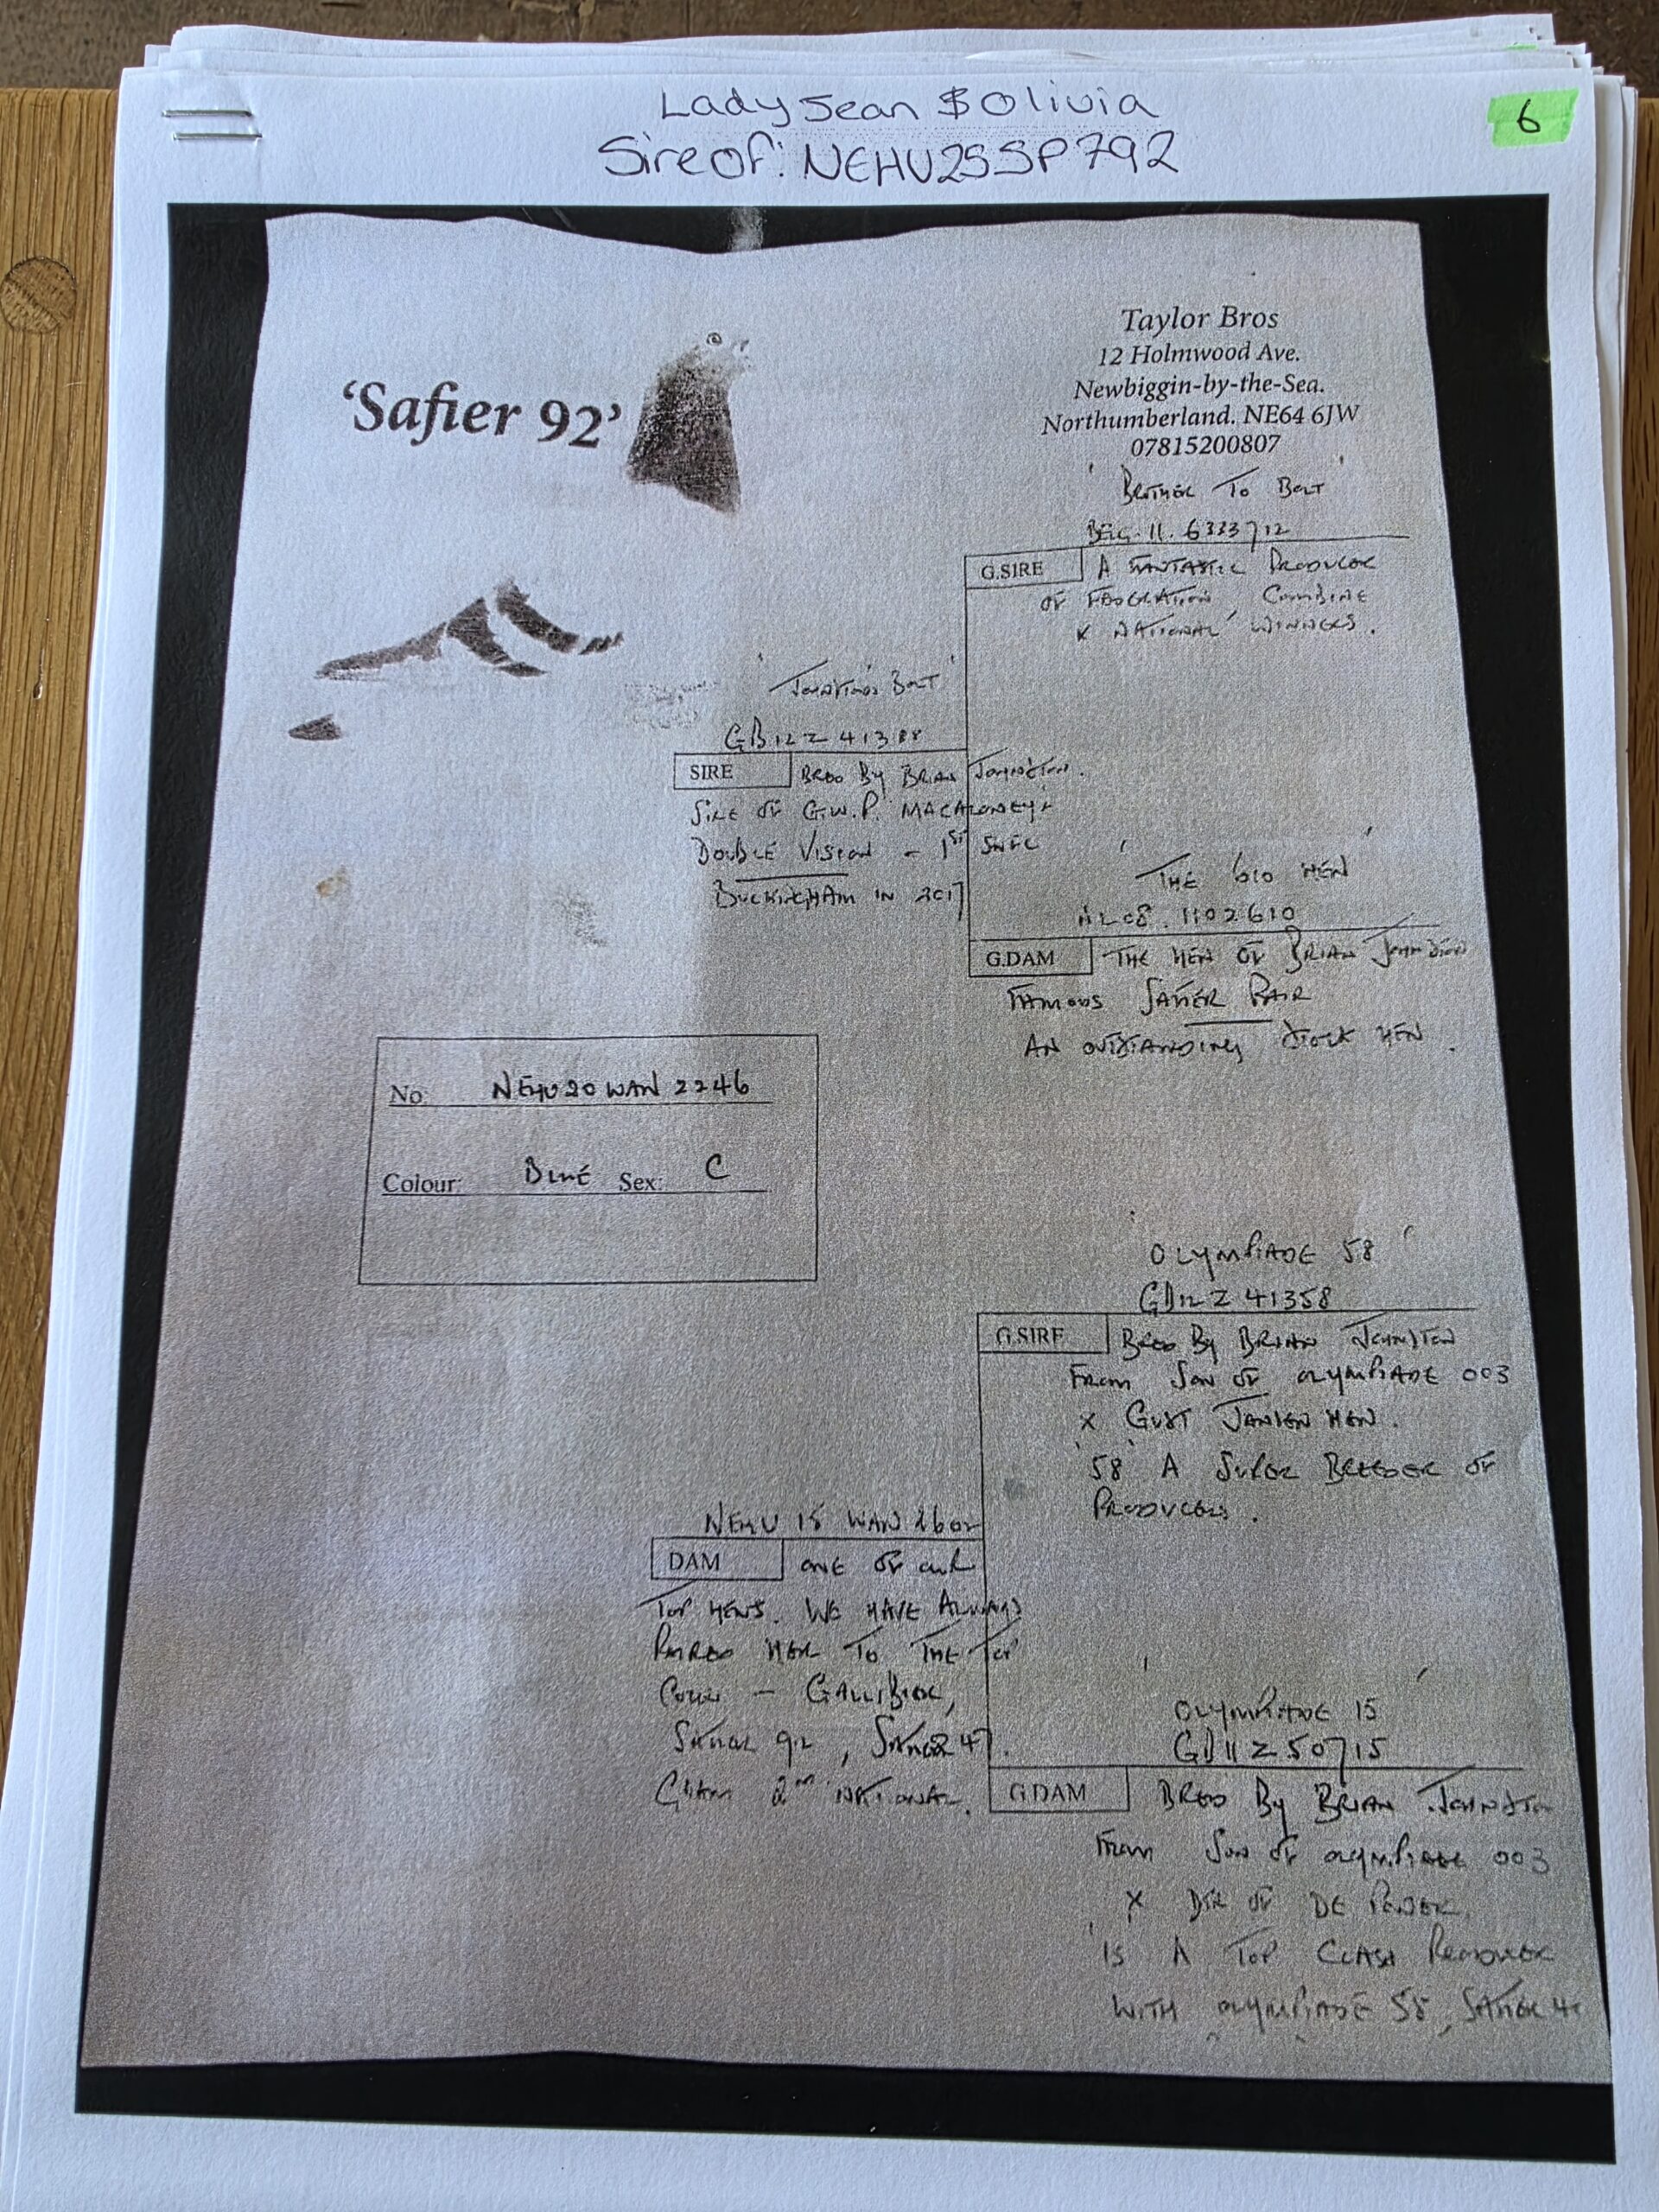 Lady Jean $ Olivia
6
Sire Of: NEHU25SP792
'Safier 92'
Taylor Bros
12 Holmwood Ave.
Newbiggin-by-the-Sea.
Northumberland. NE64 6JW
07815200807
'BROTHER TO BOLT'
BELG. 11. 6333712
G.SIRE A FANTASTIC PRODUCER
OF FEDERATION, COMBINE
& NATIONAL WINNERS.
'JOHNSTONS BOLT'
GB12Z 41388
SIRE BRED BY BRIAN JOHNSTON.
SIRE OF G.W.P. MACALONEYS
DOUBLE VISION - 1ST SNFC
BUCKINGHAM IN 2017
'THE 610 HEN'
NL08. 1102610
G.DAM THE HEN OF BRIAN JOHNSTON
FAMOUS SAFIER PAIR
AN OUTSTANDING STOCK HEN.
No: NEHU20 WAN 2246
Colour: BLUE Sex: C
'OLYMPIADE 58'
GB12Z 41358
G.SIRE BRED BY BRIAN JOHNSTON
FROM SON OF OLYMPIADE 003
X GUST JANSEN HEN.
'58' A SUPER BREEDER OF
PRODUCERS.
NEHU 15 WAN 2602
DAM ONE OF OUR
TOP HENS. WE HAVE ALWAYS
PAIRED HER TO THE TOP
COCKS - GALLIBIER,
SAFIER 92, SAFIER 47.
GDAM 2ND NATIONAL.
'OLYMPIADE 15'
GB11Z50715
G.DAM BRED BY BRIAN JOHNSTON
FROM SON OF OLYMPIADE 003
X DTR OF DE
'15 A TOP CLASS PRODUCER
WITH OLYMPIADE 58, SAFIER